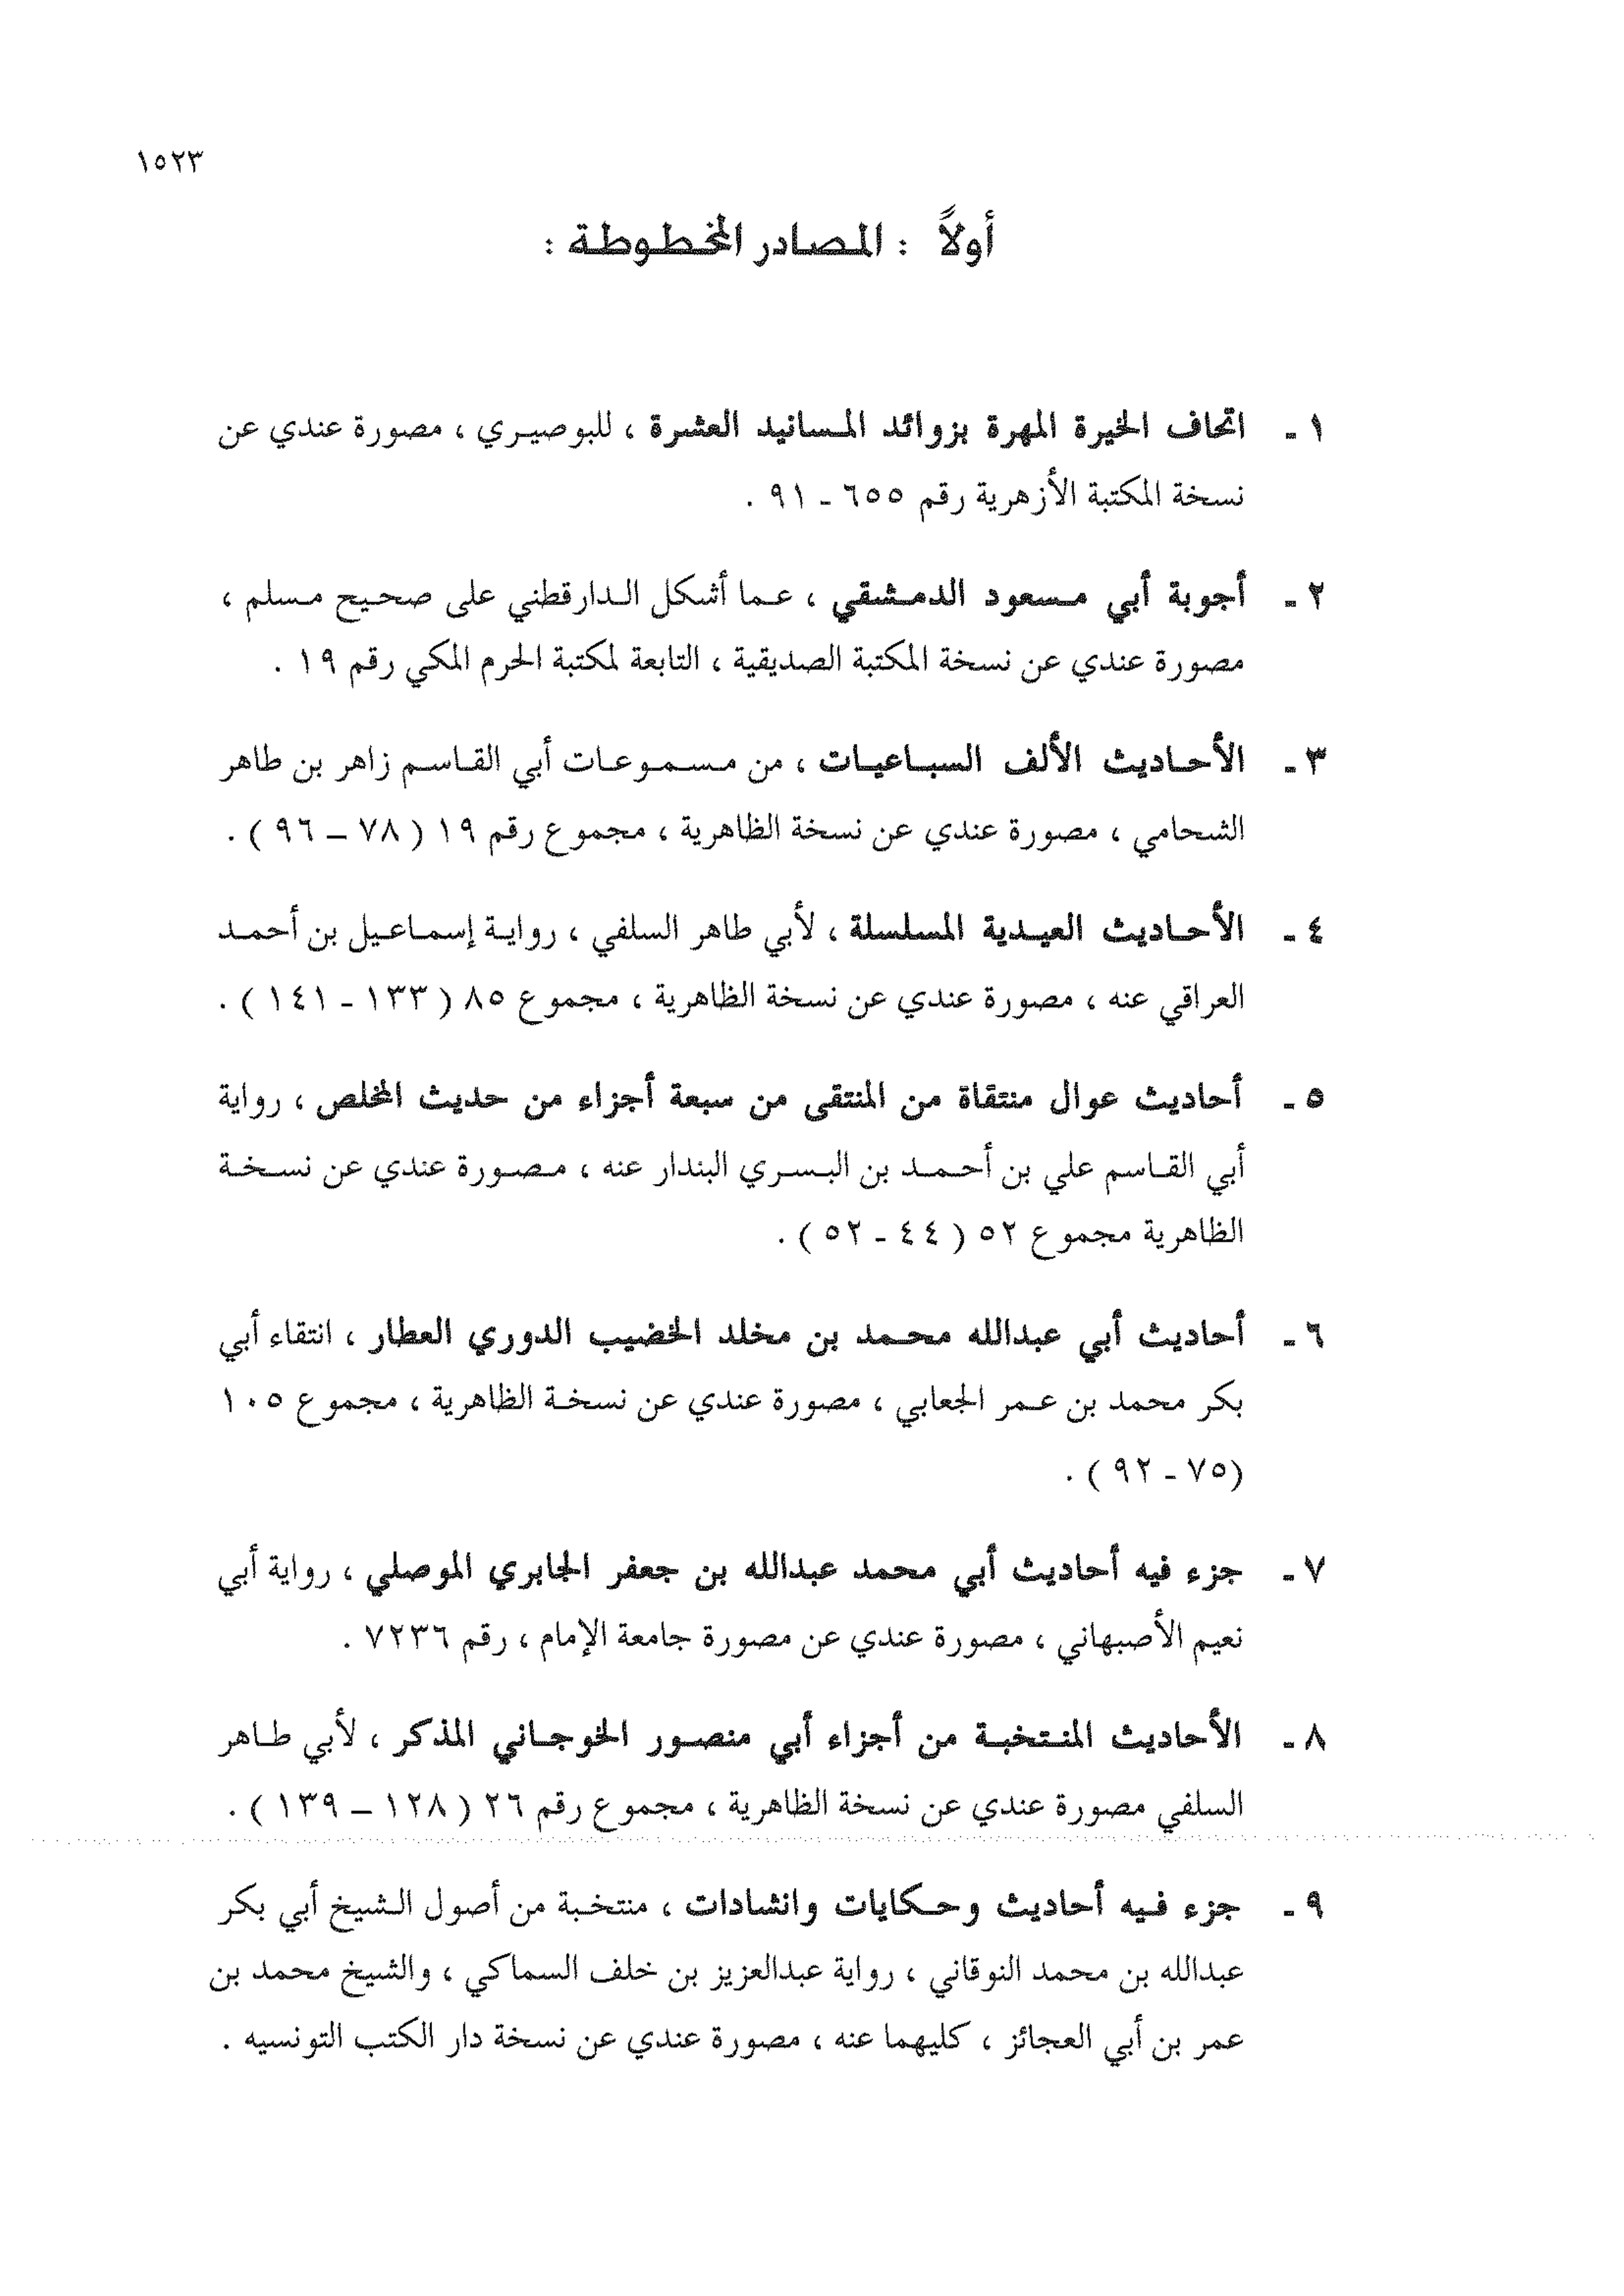 ١٥٢٣
أولاً : المصادر المخطوطة :
١ - اتحاف الخيرة المهرة بزوائد المسانيد العشرة ، للبوصيري ، مصورة عندي عن
نسخة المكتبة الأزهرية رقم ٦٥٥ - ٩١ .
٢ - أجوبة أبي مسعود الدمشقي ، عما أشكل الدارقطني على صحيح مسلم ،
مصورة عندي عن نسخة المكتبة الصديقية ، التابعة لمكتبة الحرم المكي رقم ١٩ .
٣ - الأحاديث الألف السباعيات ، من مسموعات أبي القاسم زاهر بن طاهر
الشحامي ، مصورة عندي عن نسخة الظاهرية ، مجموع رقم ١٩ ( ٧٨ – ٩٦ ) .
٤ - الأحاديث العيدية المسلسلة ، لأبي طاهر السلفي ، رواية إسماعيل بن أحمد
العراقي عنه ، مصورة عندي عن نسخة الظاهرية ، مجموع ٨٥ ( ١٣٣ - ١٤١ ) .
٥ - أحاديث عوال منتقاة من المنتقى من سبعة أجزاء من حديث المخلص ، رواية
أبي القاسم علي بن أحمد بن البسري البندار عنه ، مصورة عندي عن نسخة
الظاهرية مجموع ٥٢ ( ٤٤ - ٥٢ ) .
٦ - أحاديث أبي عبدالله محمد بن مخلد الخضيب الدوري العطار ، انتقاء أبي
بكر محمد بن عمر الجعابي ، مصورة عندي عن نسخة الظاهرية ، مجموع ١٠٥
(٧٥ - ٩٢ ) .
٧ - جزء فيه أحاديث أبي محمد عبدالله بن جعفر الجابري الموصلي ، رواية أبي
نعيم الأصبهاني ، مصورة عندي عن مصورة جامعة الإمام ، رقم ٧٢٣٦ .
٨ - الأحاديث المنتخبة من أجزاء أبي منصور الخوجاني المذكر ، لأبي طاهر
السلفي مصورة عندي عن نسخة الظاهرية ، مجموع رقم ٢٦ ( ١٢٨ – ١٣٩ ) .
٩ - جزء فيه أحاديث وحكايات وانشادات ، منتخبة من أصول الشيخ أبي بكر
عبدالله بن محمد النوقاني ، رواية عبدالعزيز بن خلف السماكي ، والشيخ محمد بن
عمر بن أبي العجائز ، كليهما عنه ، مصورة عندي عن نسخة دار الكتب التونسيه .